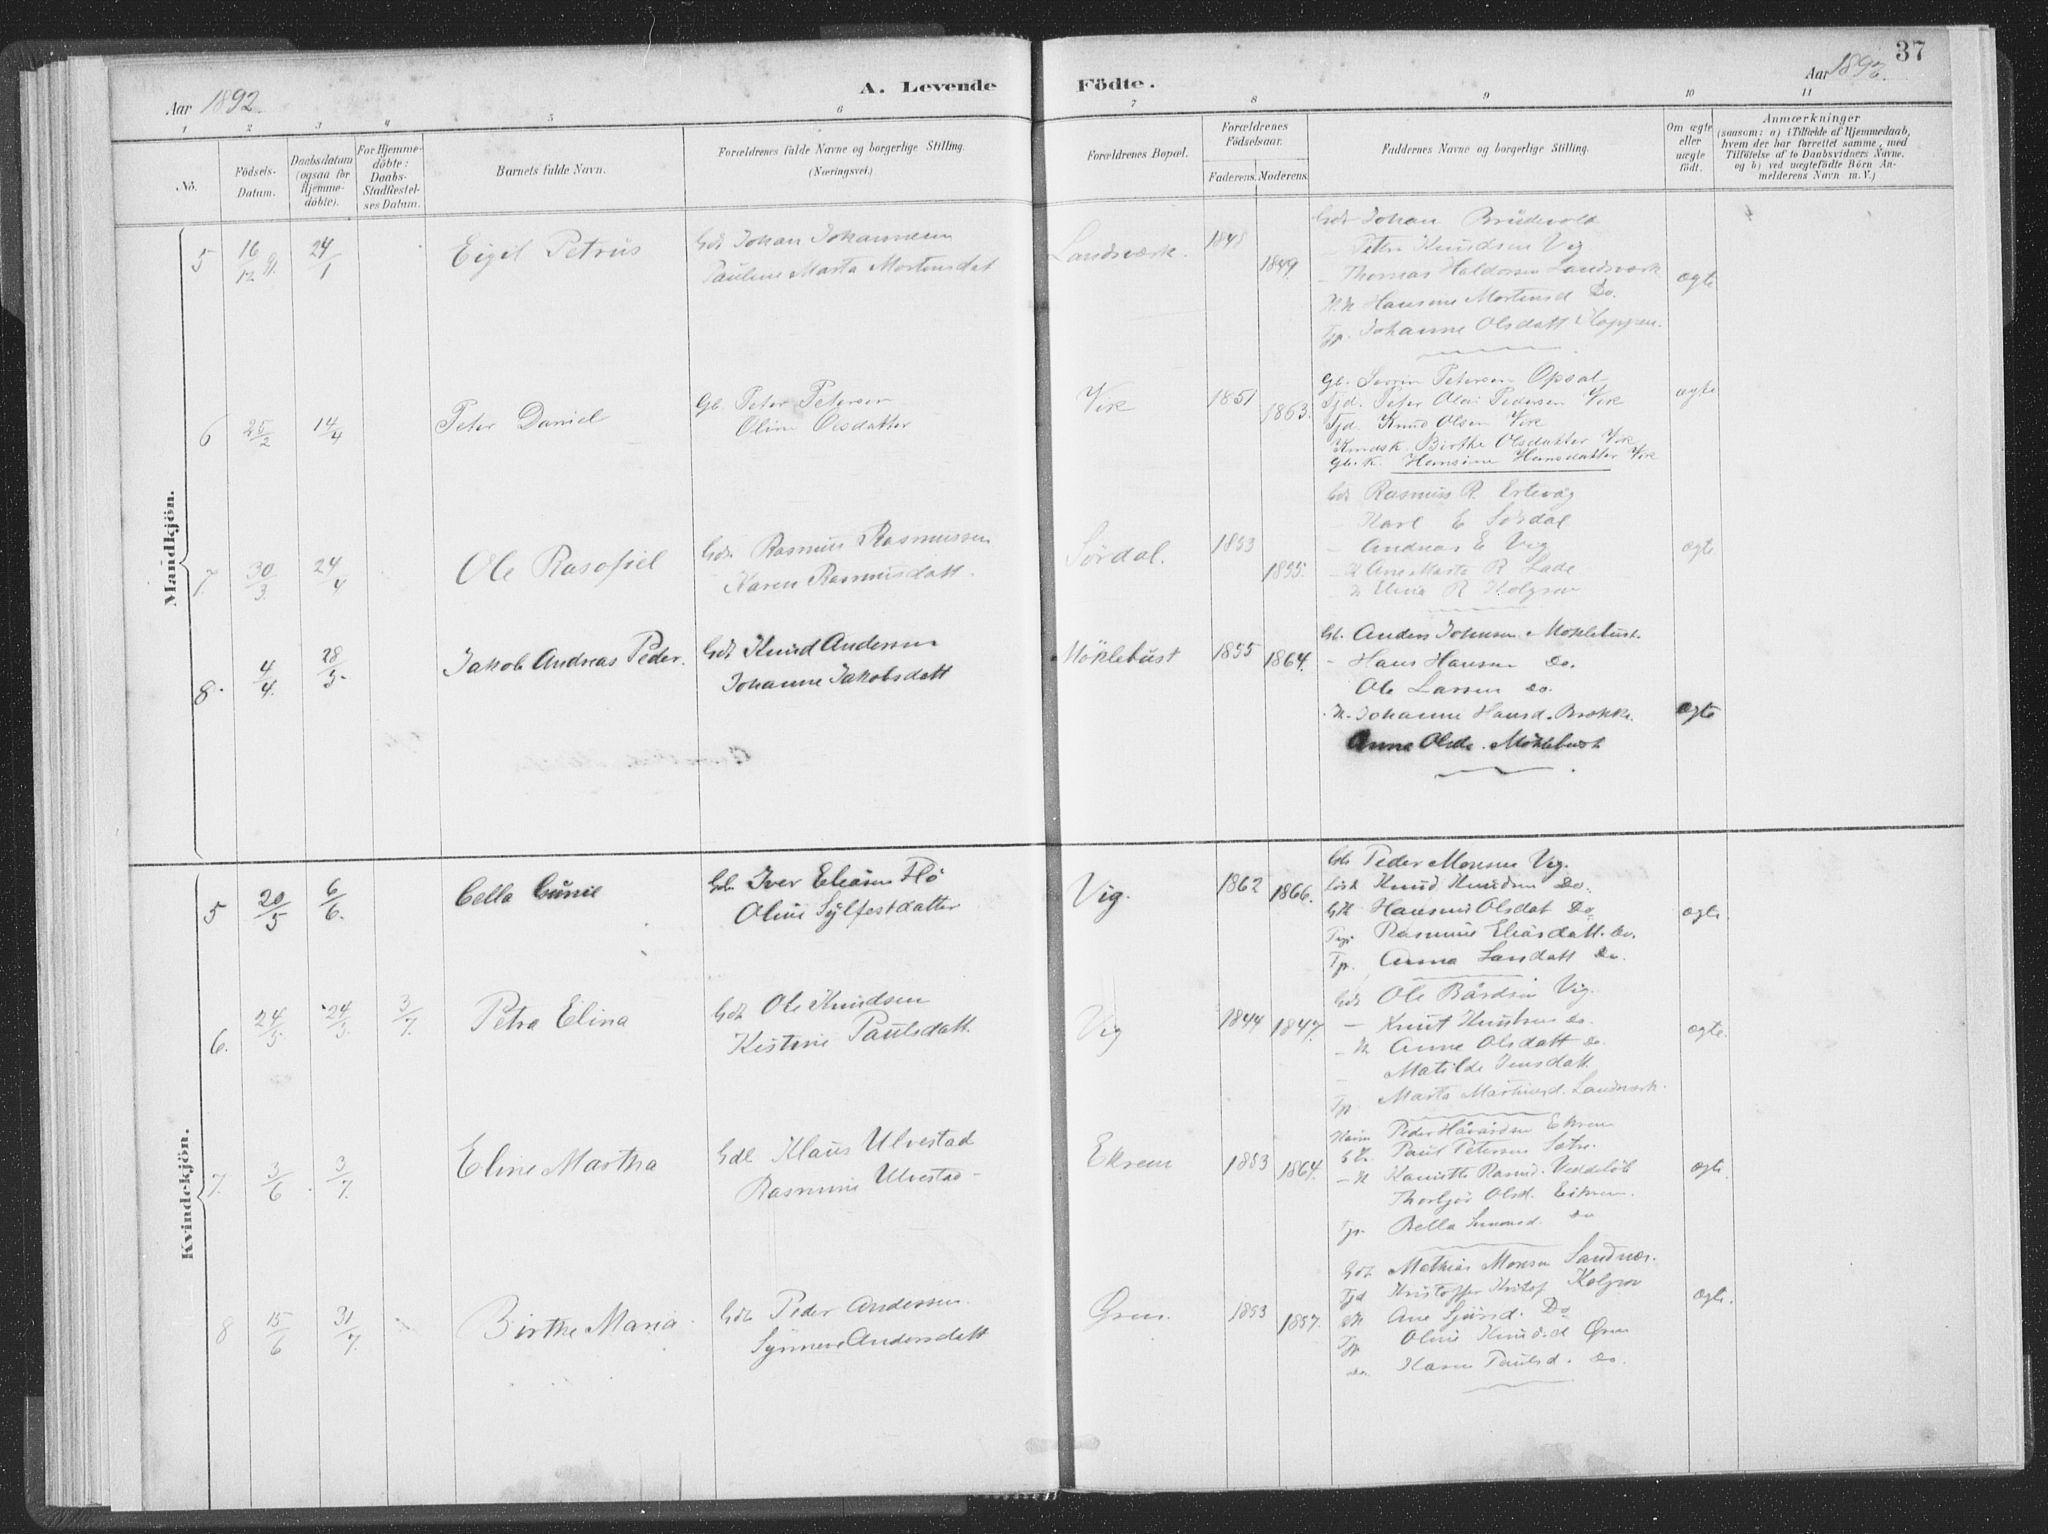 37
Aar 1892
A. Levende Födte.
Aar 1892.
1 2 3 4 5 6 7 8 9 10 11
No.
Födsels-Datum.
Daabsdatum (ogsaa for Hjemmedöbte).
For Hjemmedöbte: Daabs-Stadfæstelses Datum.
Barnets fulde Navn.
Forældrenes fulde Navne og borgerlige Stilling.
(Næringsvei.)
Forældrenes Bopæl.
Forældrenes Födselsaar.
Faderens. Moderens.
Faddernes Navne og borgerlige Stilling.
Om ægte eller uægte födt.
Anmærkninger
(saasom: a) i Tilfælde af Hjemmedaab, hvem der har forrettet samme, med Tilföielse af to Daabsvidners Navne, og b) ved uægtefödte Börn Anmelderens Navn m. V.)
Mandkjön.
5 16/12 91. 24/1 Eigil Petrus
Gdr Johan Johannesen
Pauline Marta Mortensdat
Landsværk. 1848 1849. ægte
Gdr Johan Brudevold
- Peter Knudsen Vig
- Thomas Haldorsen Landsværk
Hansine Mortensd Do.
Johanne Olsdatt Hoppen.
6 25/2 14/4 Peter Daniel
Gb. Peter Petersen
Oline Olsdatter
Vik 1851 1863. ægte
Gb. Petersen Opsal
Tjd. Peter Olai Pedersen Vik
Tjd. Knud Olsen Vik
Birthe Olsdatter Vik
Gb.k. Hansine Hansdatter Vik
7. 30/3. 24/4 Ole Rasofiel
Gdr. Rasmus Rasmussen
Karen Rasmusdatt.
Sördal. 1853 1855. ægte
Gdr Rasmus R. Ertevåg
Karl E Sördal
- Andreas E Vig
- K Ane Marta R Lade
- K Elina R Holgrov
8. 4/4. 28/5. Jakob Andreas Peder.
Gdr Knud Andersen
Johanne Jakobsdatt
Möklebust 1855 1864. ægte
Gb. Anders Johnsen Möklebust.
- Hans Hansen Do.
Ole Larsen do.
K. Johanne Hansd. Brække.
Anne Olsdr. Möklebust
Kvindekjön.
5 20/5 6/6. Cella Gunie
Gb. Iver Eliasen Flö
Oline Sylfestdatter
Vig. 1862 1866. ægte.
Gdr Peder Monsen Vig.
Knud Knudsen Do.
Olsdat Do
Rasmine Eliasdatt. Do.
Tp. Anna Larsdatt Do.
6. 24/5 24/5. 3/7. Petra Elina
Gdr Ole Knudsen
Kistine Paulsdatt.
Vig 1844 1847. ægte.
Gdr Ole Bårdsen Vig.
- Knut Knutsen do.
- K Anne Olsdatt Do
Matilde Jensdatt.
Tp. Marta Martinusd. Landværk.
7. 3/6. 3/7. Eline Martha
Gdl Klaus Ulvestad
Rasmine Ulvestad
Ekrem 1853 1864. ægte.
Peder Håvardsen Ekrem
Paul Petersen Sætre.
- K Rasmd. Veddelöb
Olsd. Eikrem.
Tp. Bella do
8 15/6 31/7. Birthe Maria
Gdr Peder Andersen.
Synneve Andersdatt
Ören. 1853 1857. ægte.
Gdr Mathias Monsen Sandnæs.
Tjd Kristoffer Kristof Kolgrov
Ane Sjursd. Do
Tp. Oline Knudsd Ören
do. Karen Paulsd. do.